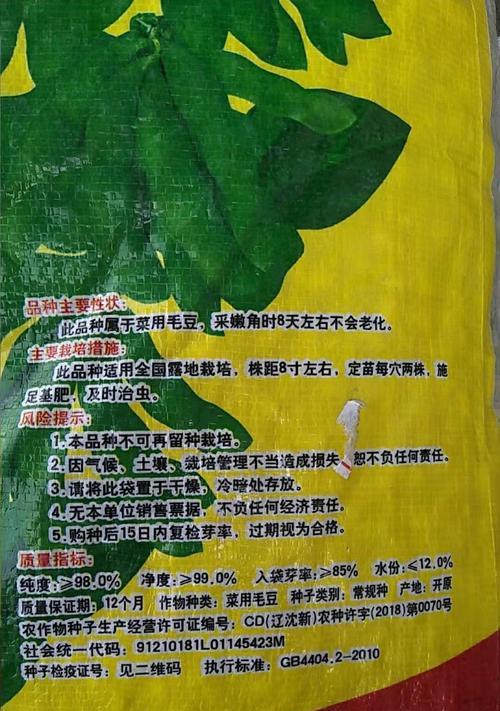 品种主要性状:
此品种属于菜用毛豆，采嫩角时8天左右不会老化。
主要栽培措施:
此品种适用全国露地栽培，株距8寸左右，定苗每穴两株，施
足基肥，及时治虫。
风险提示:
1.本品种不可再留种栽培。
2.因气候、土壤、栽培管理不当造成损失 恕不负任何责任。
3.请将此袋置于干燥，冷暗处存放。
4.无本单位销售票据，不负任何经济责任。
5.购种后15日内复检芽率，过期视为合格。
质量指标:
纯度:≥98.0% 净度:≥99.0% 入袋芽率:≥85% 水份:≤12.0%
质量保证期: 12个月 作物种类: 菜用毛豆 种子类别: 常规种 产地: 开原
农作物种子生产经营许可证编号: CD(辽沈新)农种许字(2018)第0070号
社会统一代码: 91210181L01145423M
种子检疫证号: 见二维码 执行标准: GB4404.2-2010